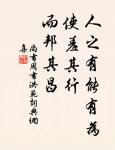 人之有能有為
使羞其行
而邦其昌
尚書周書洪範詞典網
集